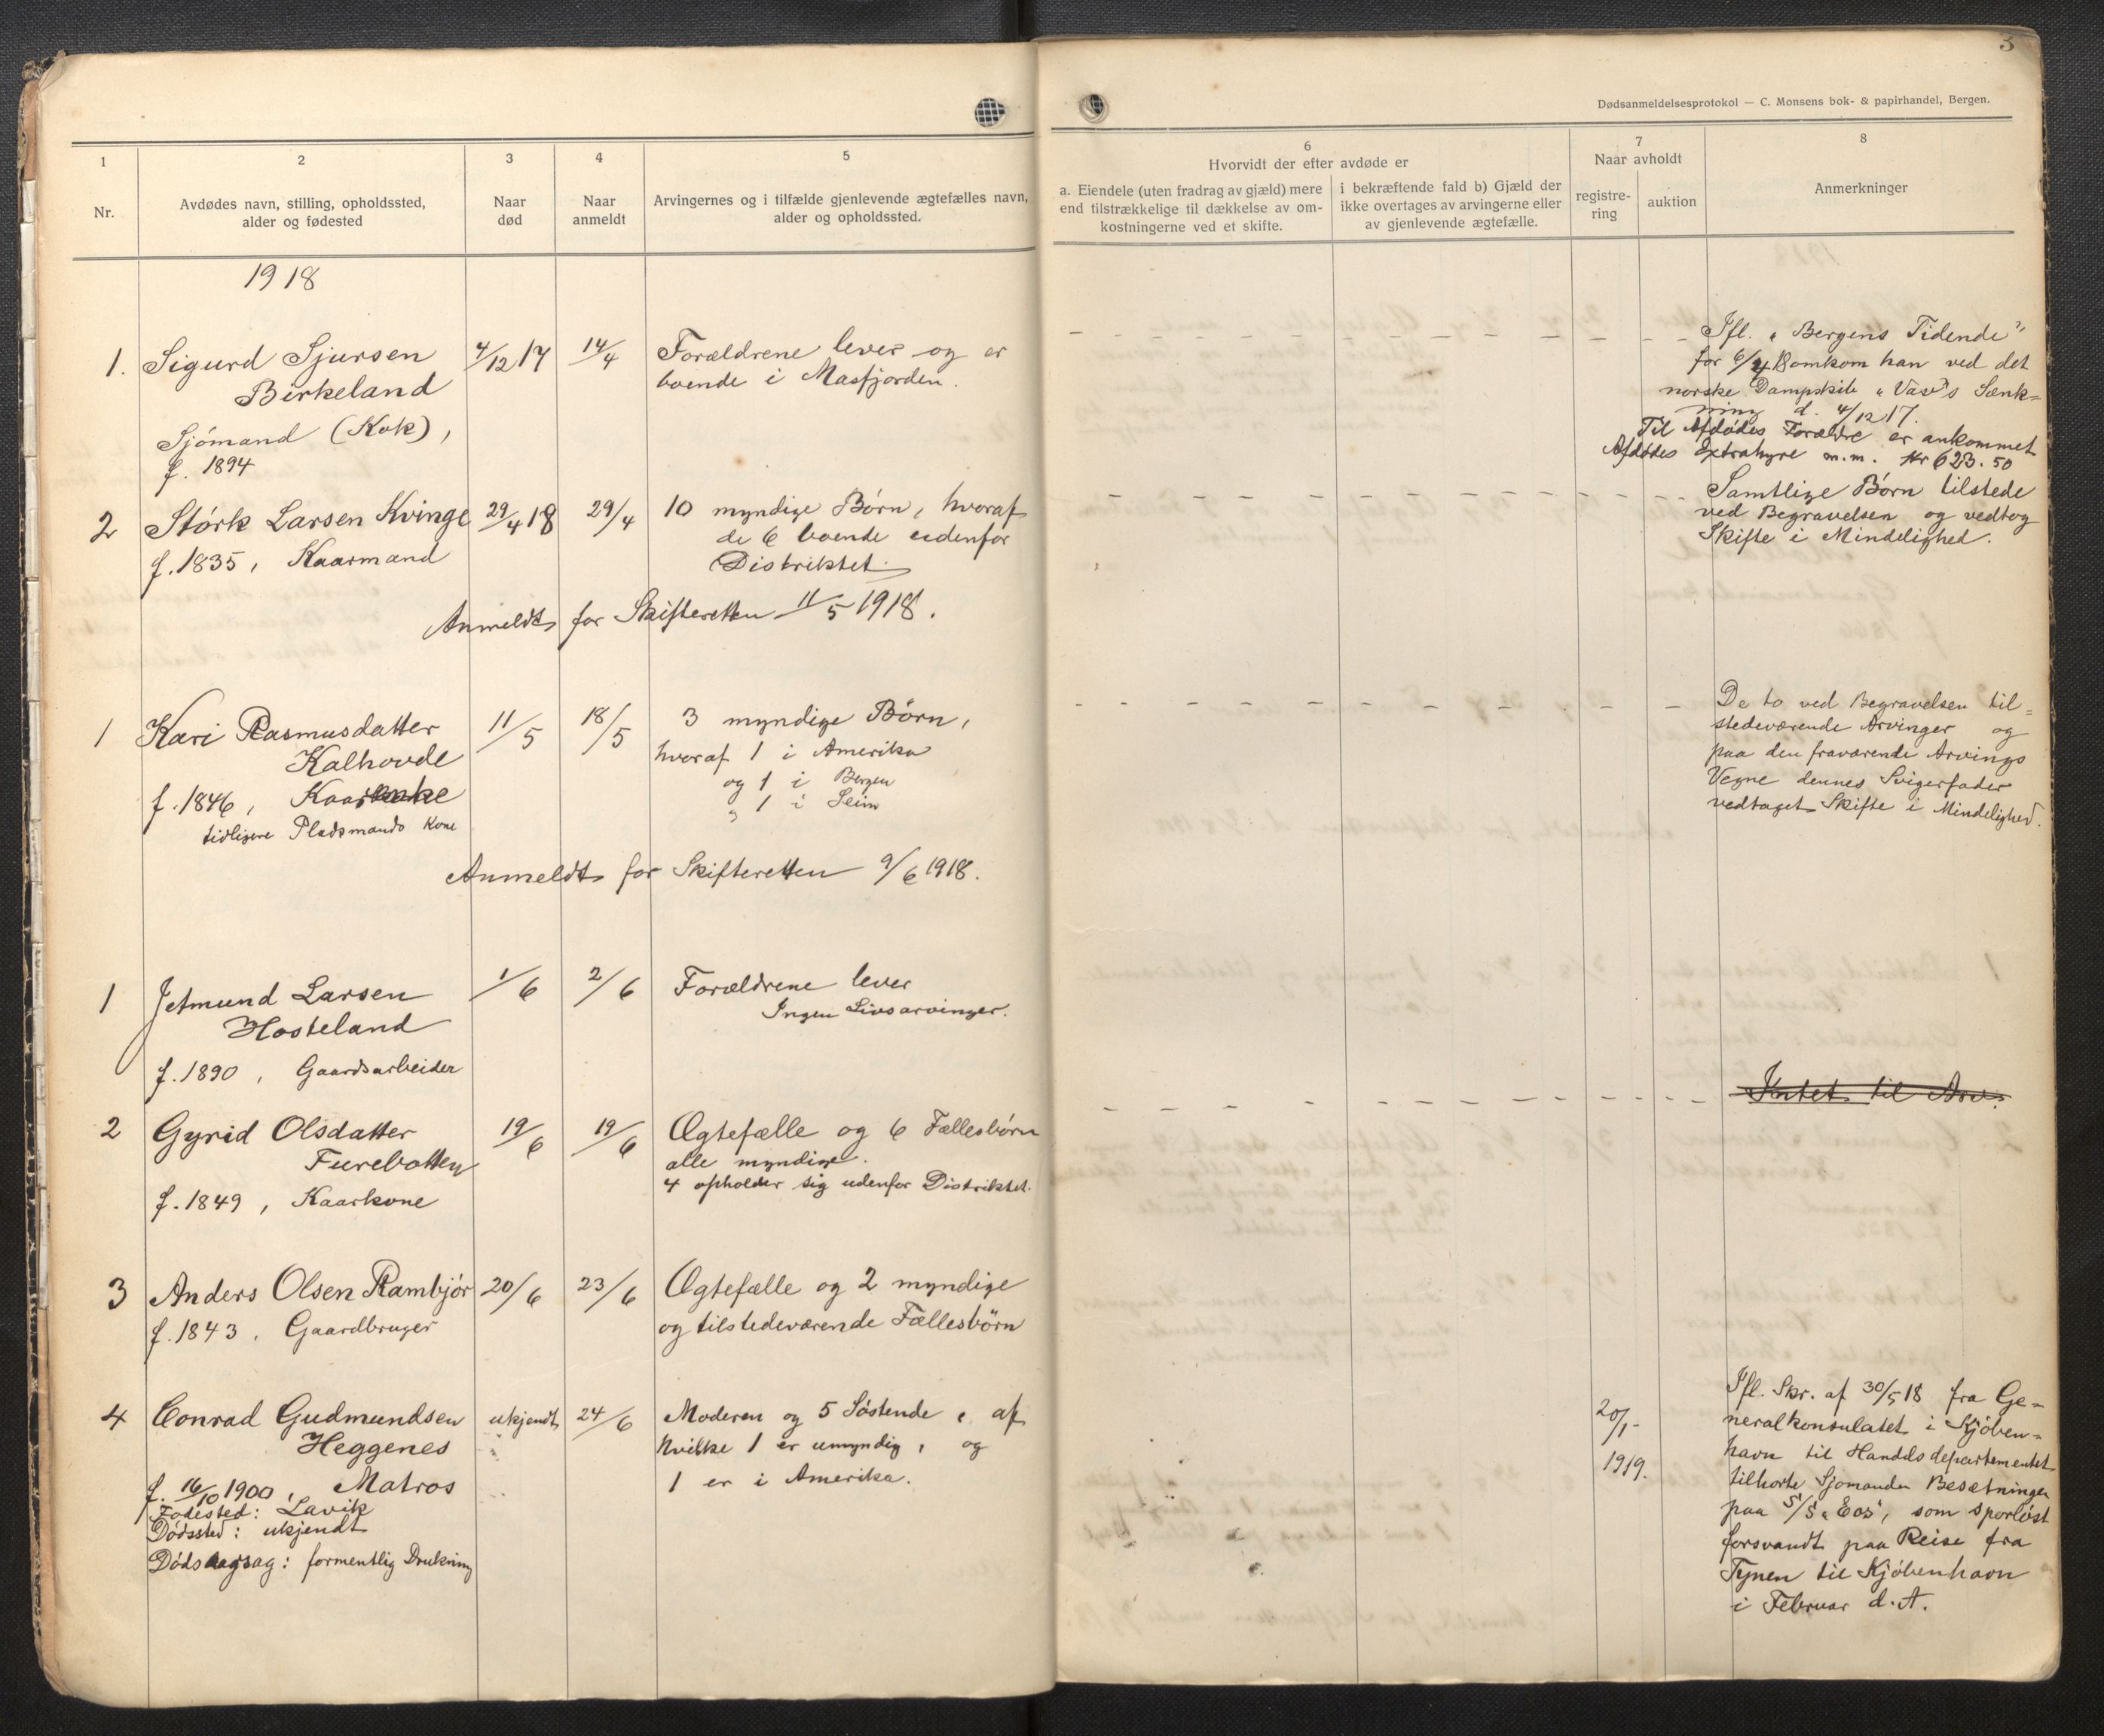 3
Dødsanmeldelsesprotokol — C. Monsens bok- & papirhandel, Bergen.
1
Nr.
2
Avdødes navn, stilling, opholdssted,
alder og fødested
3
Naar
død
4
Naar
anmeldt
5
Arvingernes og i tilfælde gjenlevende ægtefælles navn,
alder og opholdssted.
6
Hvorvidt der efter avdøde er
a. Eiendele (uten fradrag av gjæld) mere
end tilstrækkelige til dækkelse av om-
kostningerne ved et skifte.
i bekræftende fald b) Gjæld der
ikke overtages av arvingerne eller
av gjenlevende ægtefælle.
7
Naar avholdt
registre-
ring
auktion
8
Anmerkninger
1918
1.
Sigurd Sjursen
Birkeland
Sjómand (Kok),
f. 1894
4/12 17
14/4
Forældrene lever og er
boende i Masfjorden.
Ifl. „Bergens Tidende"
for 6/4 18 omkom han ved det
norske Dampskib „Vaso"s Sænk=
ning d. 4/12 17.
Til Afdødes Forældre er ankommet
Afdødes Extrahyre m.m. Kr 623.50
2
Stórk Larsen Kvinge
f. 1835, Kaarmand
29/4 18
29/4
10 myndige Børn, hvoraf
de 6 boende udenfor
Distriktet.
Samtlige Børn tilstede
ved Begravelsen og vedtog
Skifte i Mindelighed.
Anmeldt for Skifteretten 11/5 1918.
1
Kari Rasmusdatter
Kalhovde
f. 1846, Kaar
tidligere Pladsmands Kone
11/5
18/5
3 myndige Börn,
hvoraf 1 i Amerika
og 1 i Bergen
„ 1 i Seim
De to ved Begravelsen til=
stedeværende Arvinger og
paa den fraværende Arvings
Vegne dennes Svigerfader
vedtaget Skifte i Mindelighed.
Anmeldt for Skifteretten 9/6 1918.
1
Jetmund Larsen
Hosteland
f. 1890, Gaardsarbeider
1/6
2/6
Forældrene lever
Ingen Livsarvinger.
Intet til Arv.
2
Gyrid Olsdatter
Furebotten
f. 1849, Kaarkone
19/6
19/6
Ægtefælle og 6 Fællesbörn
alle myndige.
4 opholder sig udenfor Distriktet.
3
Anders Olsen Rambjór
f. 1843. Gaardbruger
20/6
23/6
Ægtefælle og 2 myndige
og tilstedeværende Fællesbörn
4
Conrad Gudmundsen
Heggenes
f. 16/10 1900, Matros
Fødested: Lavik
Dødssted: ukjendt
Dødsaarsag: formentlig Drukning
ukjendt
24/6
Moderen og 5 Søstende, af
hvilke 1 er umyndig, og
1 er i Amerika.
20/1-
1919.
Ifl. Skr. af 30/5 18 fra Ge=
neralkonsulatet i Kjöben=
havn til Handelsdepartementet
tilhørte Sjómanden Besætningen
paa S/S „Eos", som sporløst
forsvandt paa Reise fra
Tynen til Kjöbenhavn
i Februar d.A.